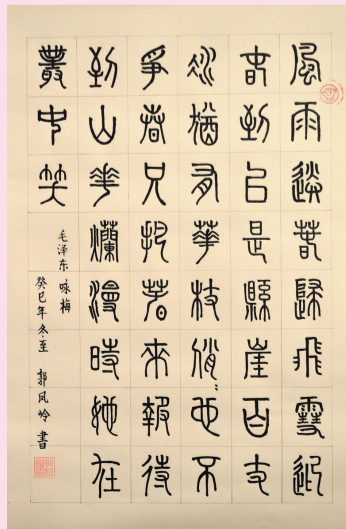 風雨送春歸飛雪迎
春到已是縣崖百丈
冰猶有華枝俏〻也不
爭春只把春來報待
到山花爛漫時她在
叢中笑
毛泽东 咏梅
癸巳年冬至 郭凤岭 書